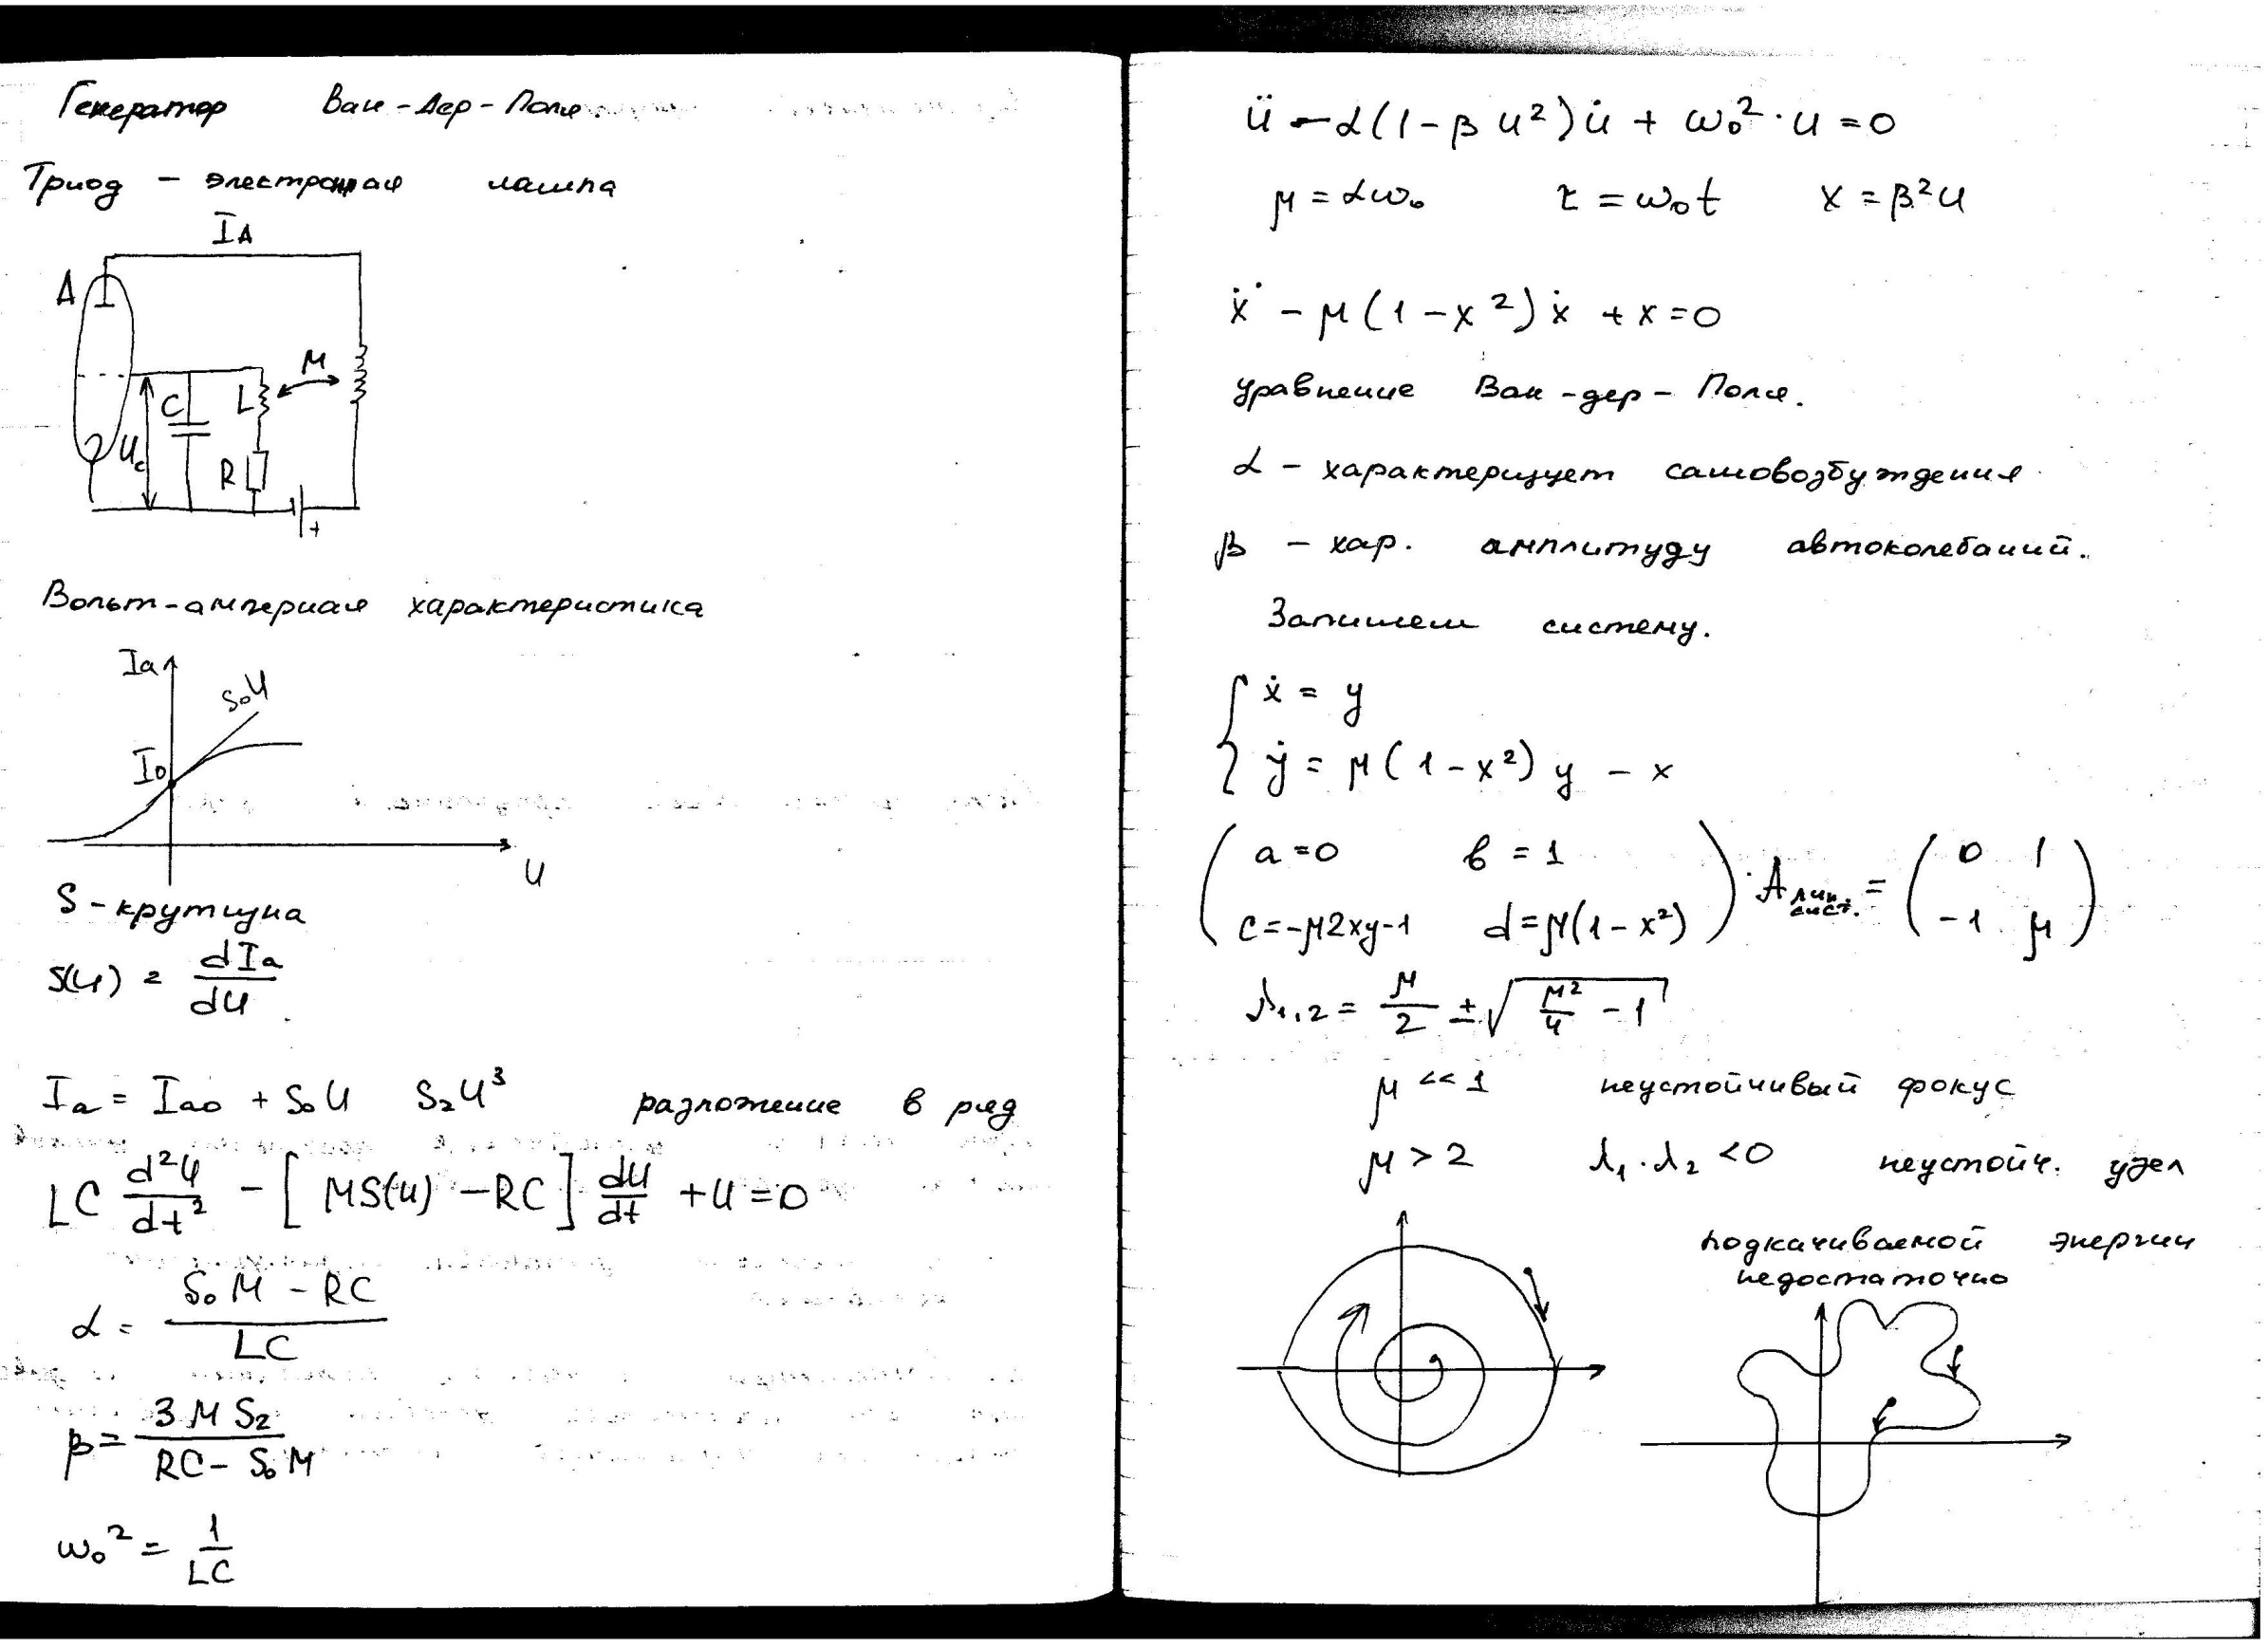 Генератор Ван-Дер-Поля
Триод - электронная лампа
I_A
A
M
C
L
U_c
R
+
Вольт-амперная характеристика
Ia
S₀U
I₀
U
S - крутизна
S(U) = dIa/dU
Ia = Ia0 + S₀U S₂U³ разложение в ряд
LC d²U/dt² - [MS(u) - RC] dU/dt + U = 0
α = (S₀M - RC)/LC
β = 3MS₂/(RC - S₀M)
ω₀² = 1/LC
ü - α(1 - βu²)u̇ + ω₀²·u = 0
μ = αω₀ τ = ω₀t x = β²u
ẍ - μ(1 - x²)ẋ + x = 0
уравнение Ван-дер-Поля.
α - характеризует самовозбуждения
β - хар. амплитуду автоколебаний.
Запишем систему.
ẋ = y
ẏ = μ(1 - x²)y - x
a = 0 b = 1
c = -μ2xy-1 d = μ(1 - x²)
A лин. сист. = (0 1
-1 μ)
λ₁,₂ = μ/2 ± √(μ²/4 - 1)
μ << 1 неустойчивый фокус
μ > 2 λ₁·λ₂ < 0 неустойч. узел
подкачиваемой энергии
недостаточно